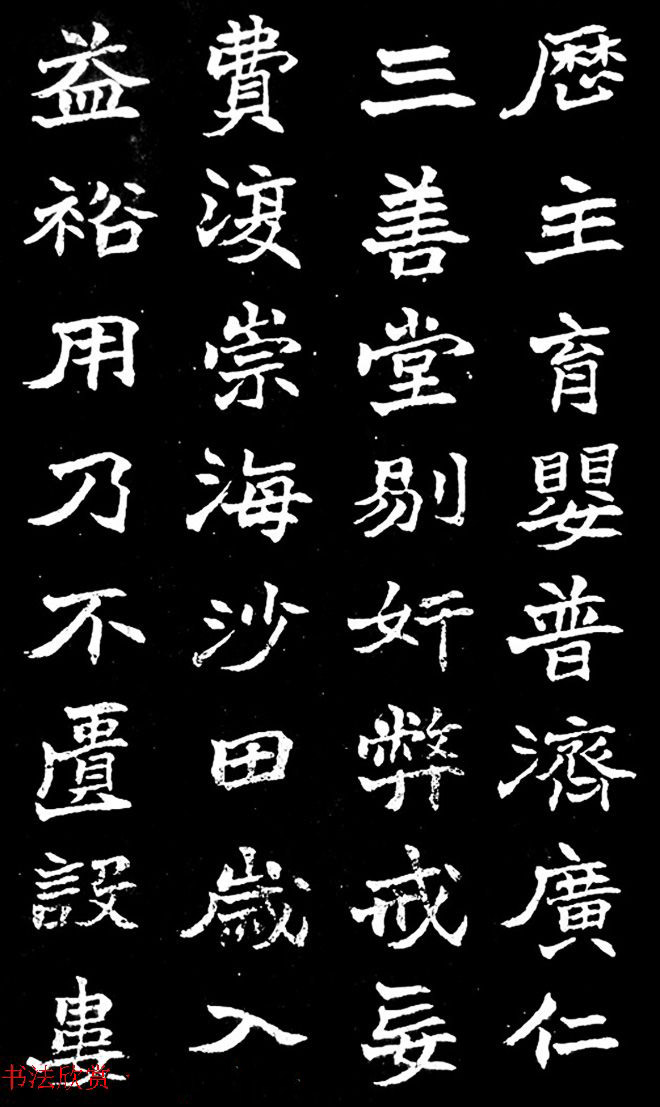 歷主育嬰普濟廣仁
三善堂剔奸弊戒妄
費復崇海沙田歲入
益裕用乃不匱設婁
书法欣赏